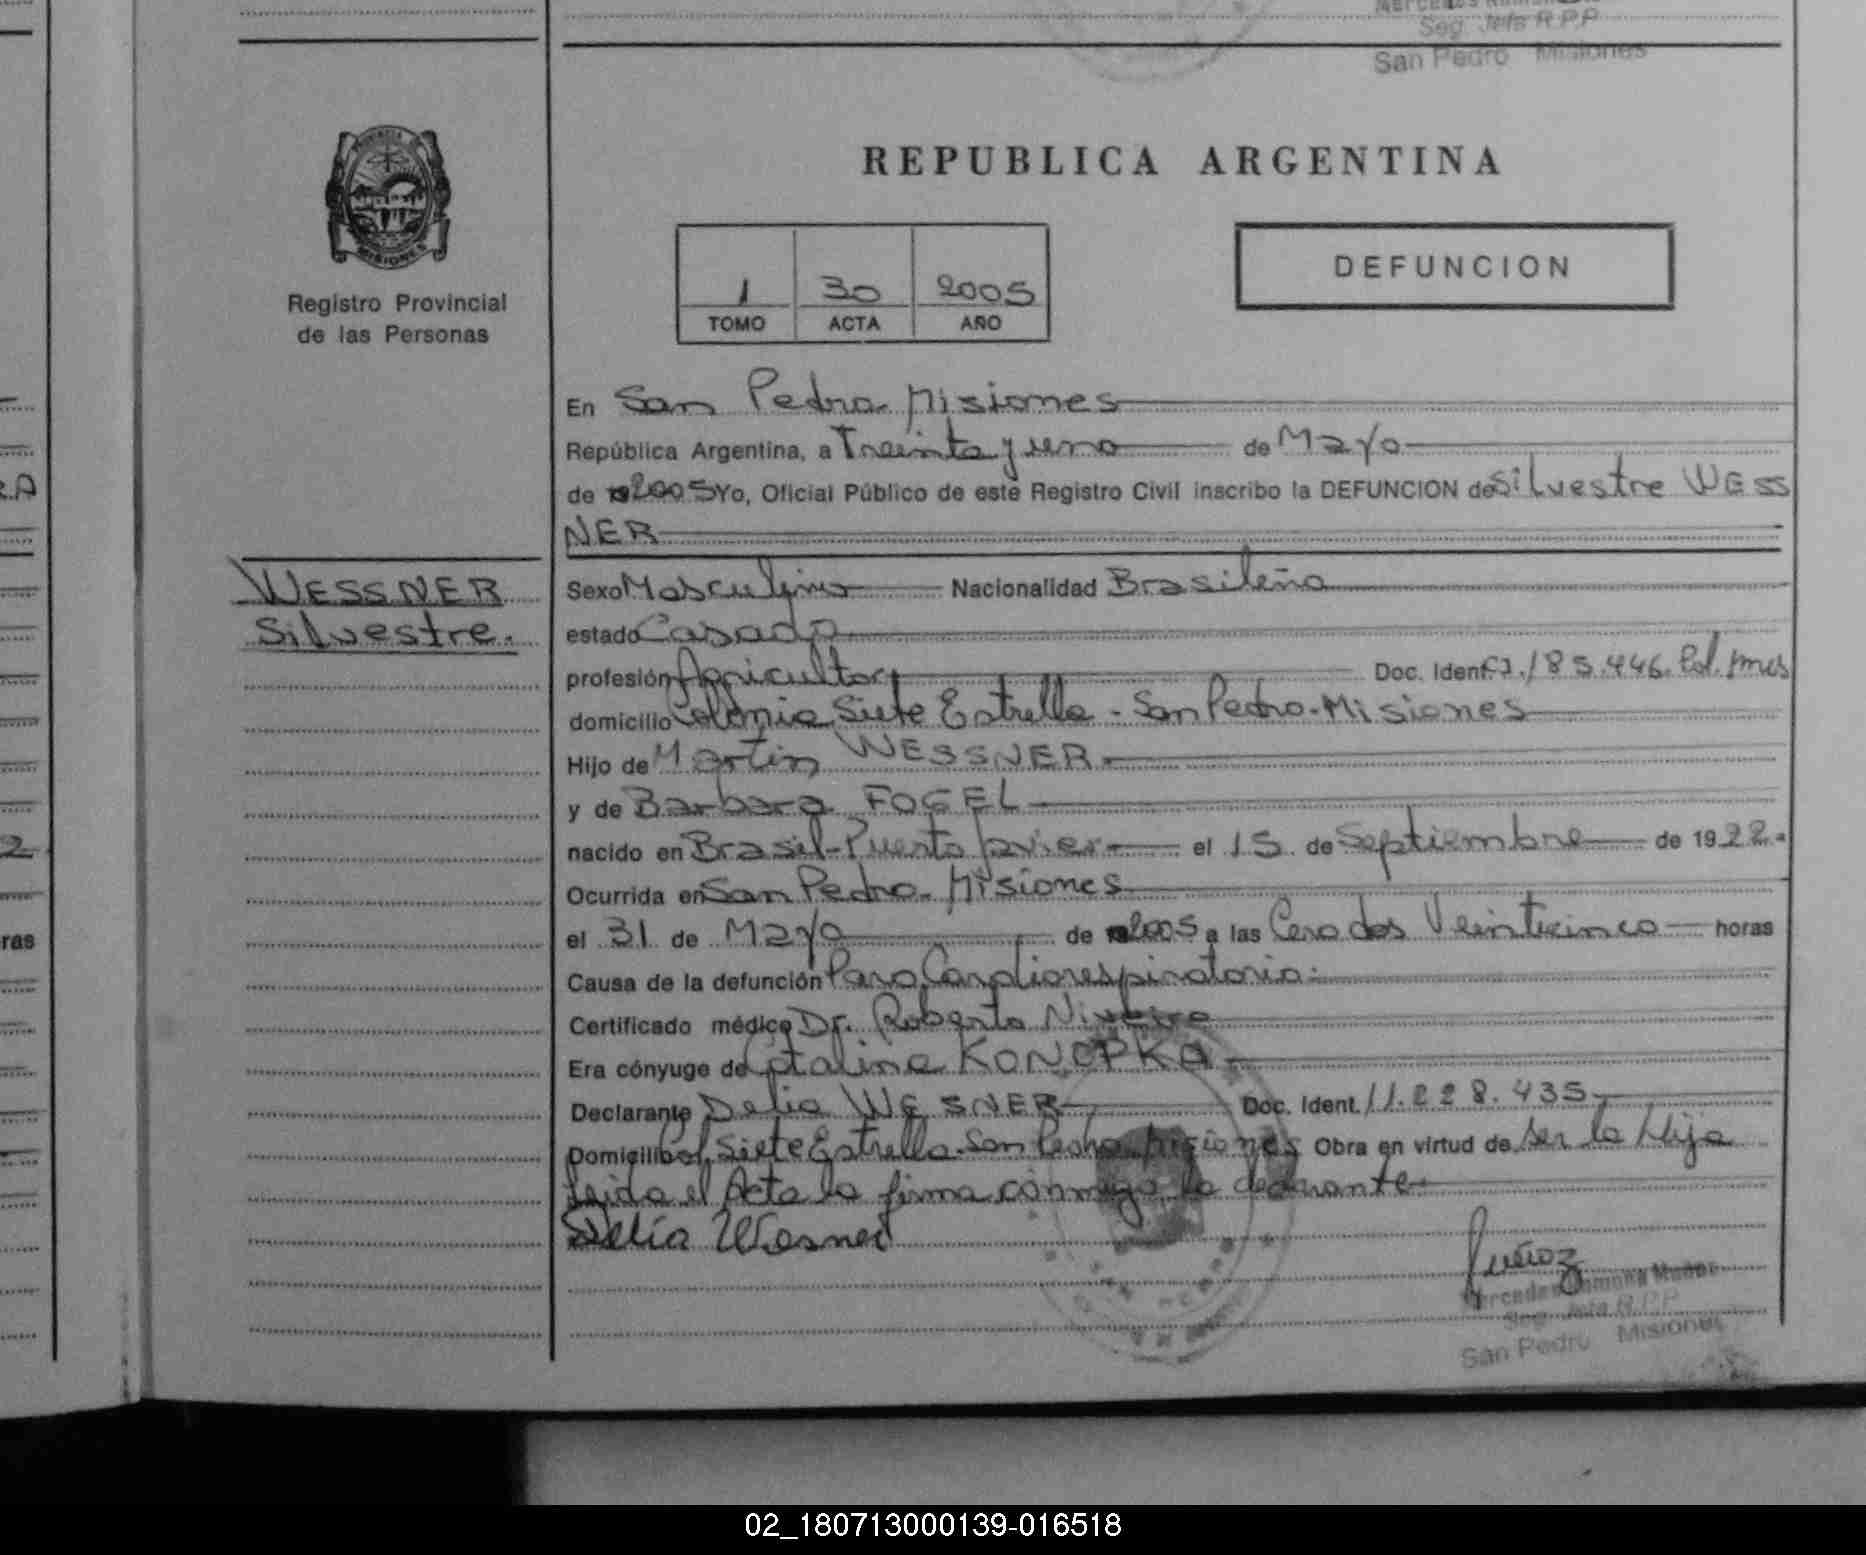 Seg. Jefa R.P.P
San Pedro Misiones
PROVINCIA DE
MISIONES
Registro Provincial
de las Personas
REPUBLICA ARGENTINA
1 30 2005
TOMO ACTA AÑO
DEFUNCION
En San Pedro. Misiones
República Argentina, a Treinta y uno de Mayo
de 2005 Yo, Oficial Público de este Registro Civil inscribo la DEFUNCION de Silvestre WESS
NER
WESSNER
Silvestre.
Sexo Masculino Nacionalidad Brasileña
estado Casado
profesión Agricultor Doc. Ident. C.I. 185.446. Pol. Mnes
domicilio Colonia Siete Estrella - San Pedro - Misiones
Hijo de Martin WESSNER
y de Barbara FOGEL
nacido en Brasil - Puerto Javier el 15 de Septiembre de 1922.
Ocurrida en San Pedro - Misiones
el 31 de Mayo de 2005 a las Cero dos Veinticinco horas
Causa de la defunción Paro Cardiorespiratorio.
Certificado médico Dr. Roberto
Era cónyuge de Catalina KONOPKA
Declarante Delia WESNER Doc. Ident. 11.228.435
Domicilio Col. Siete Estrella. San Pedro Misiones Obra en virtud de Ser la Hija
Leida el Acta la firma conmigo la declarante
Delia Wesner
Muñoz
Mercedes Ramona Muñoz
Seg. Jefa R.P.P
San Pedro Misiones
RA
2
ras
02_180713000139-016518